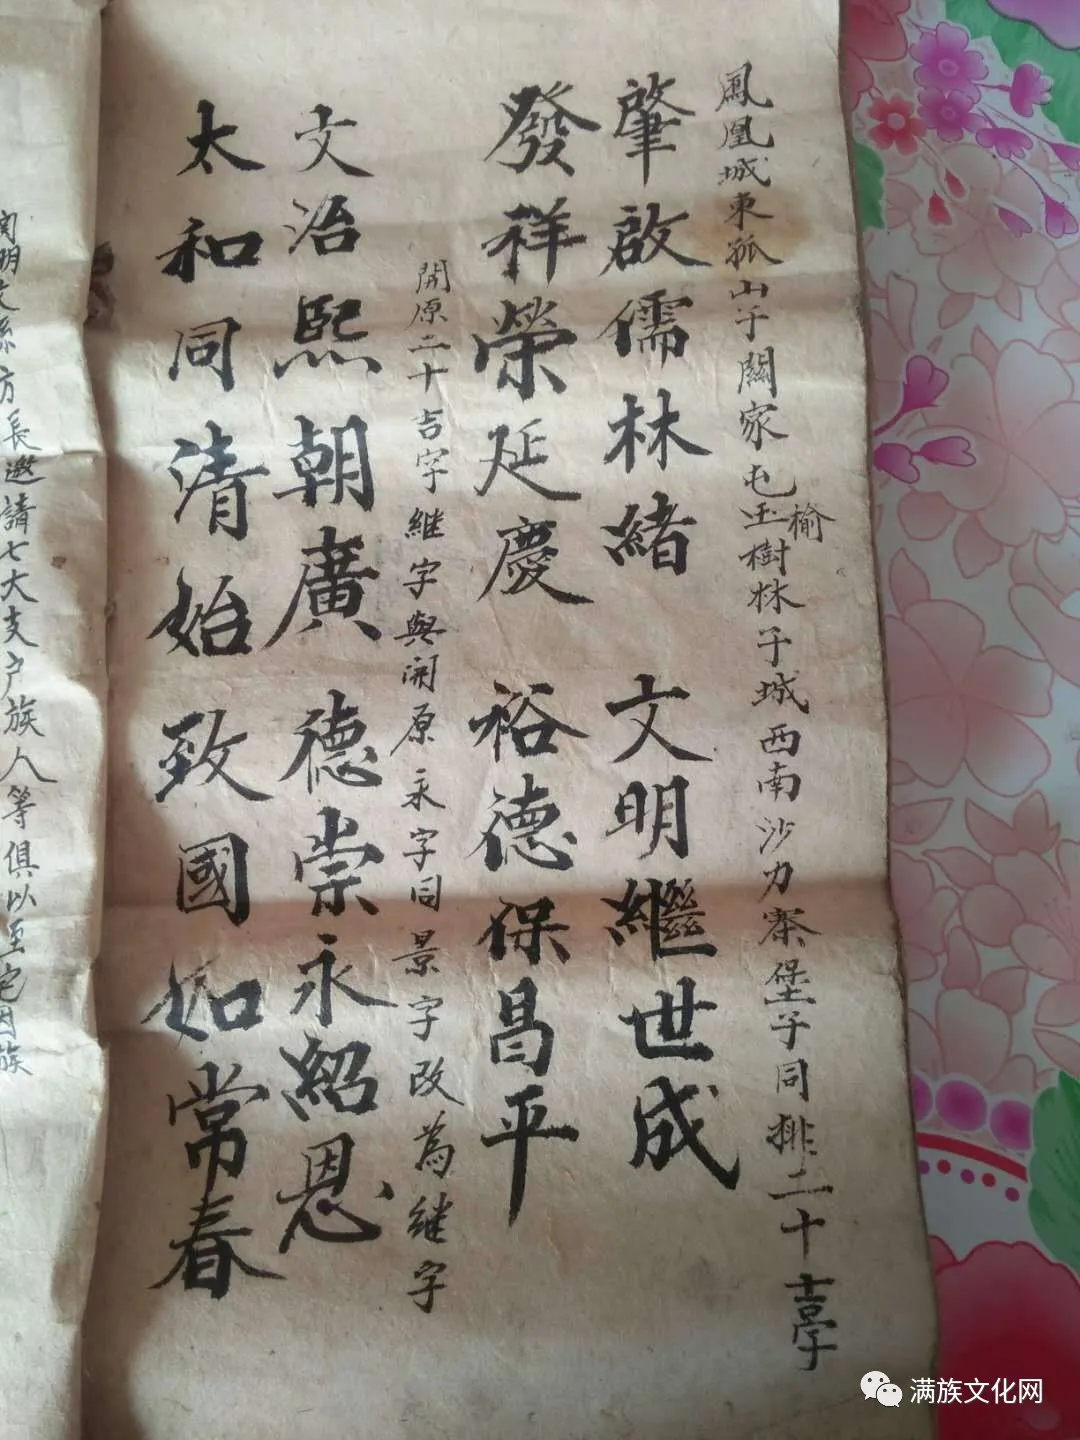 鳳凰城東孤山子關家屯玉榆樹林子城西南沙力寨堡子同排二十吉字
肇啟儒林緒 文明繼世成
發祥榮延慶 裕德保昌平
開原二十吉字 継字與開原永字同景字改為継字
文治熙朝廣 德崇永紹恩
太和同清始 致國如常春
明 方長邀請七大支户族人等俱以至宅因族
满族文化网